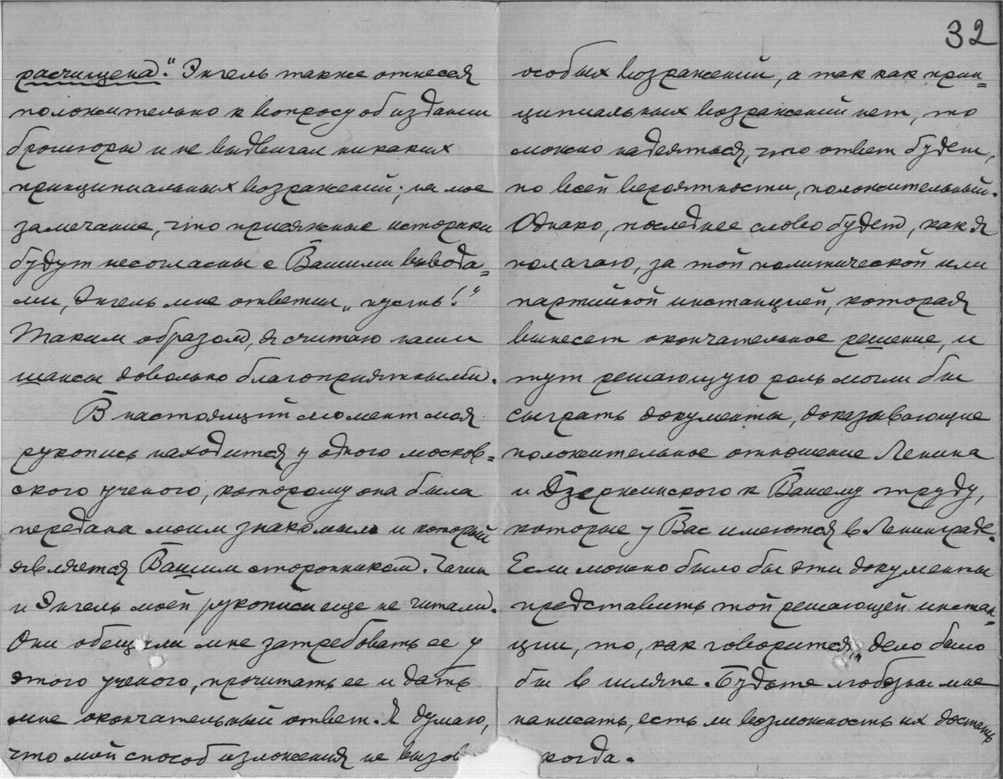 расчищена". Энгель также отнесся
положительно к вопросу об издании
брошюры и не выдвигал никаких
принципиальных возражений; на мое
замечание, что присяжные историки
будут несогласны с Вашими вывода=
ми, Энгель мне ответил „пусть!"
Таким образом, я считаю наши
шансы довольно благоприятными.
В настоящий момент моя
рукопись находится у одного москов=
ского ученого, которому она была
передана моим знакомым и который
является Вашим сторонником. Чагин
и Энгель моей рукописи еще не читали.
Они обещали мне затребовать ее у
этого ученого, прочитать ее и дать
мне окончательный ответ. Я думаю,
что мой способ изложения не вызов
32
особых возражений, а так как прин=
ципиальных возражений нет, то
можно надеяться, что ответ будет,
по всей вероятности, положительный.
Однако, последнее слово будет, как я
полагаю, за той политической или
партийной инстанцией, которая
вынесет окончательное решение, и
тут решающую роль могли бы
сыграть документы, доказывающие
положительное отношение Ленина
и Дзержинского к Вашему труду,
которые у Вас имеются в Ленинграде.
Если можно было бы эти документы
представить той решающей инстан=
ции, то, как говорится, „дело было
бы в шляпе. Будьте любезны мне
написать, есть ли возможность их достать
когда.